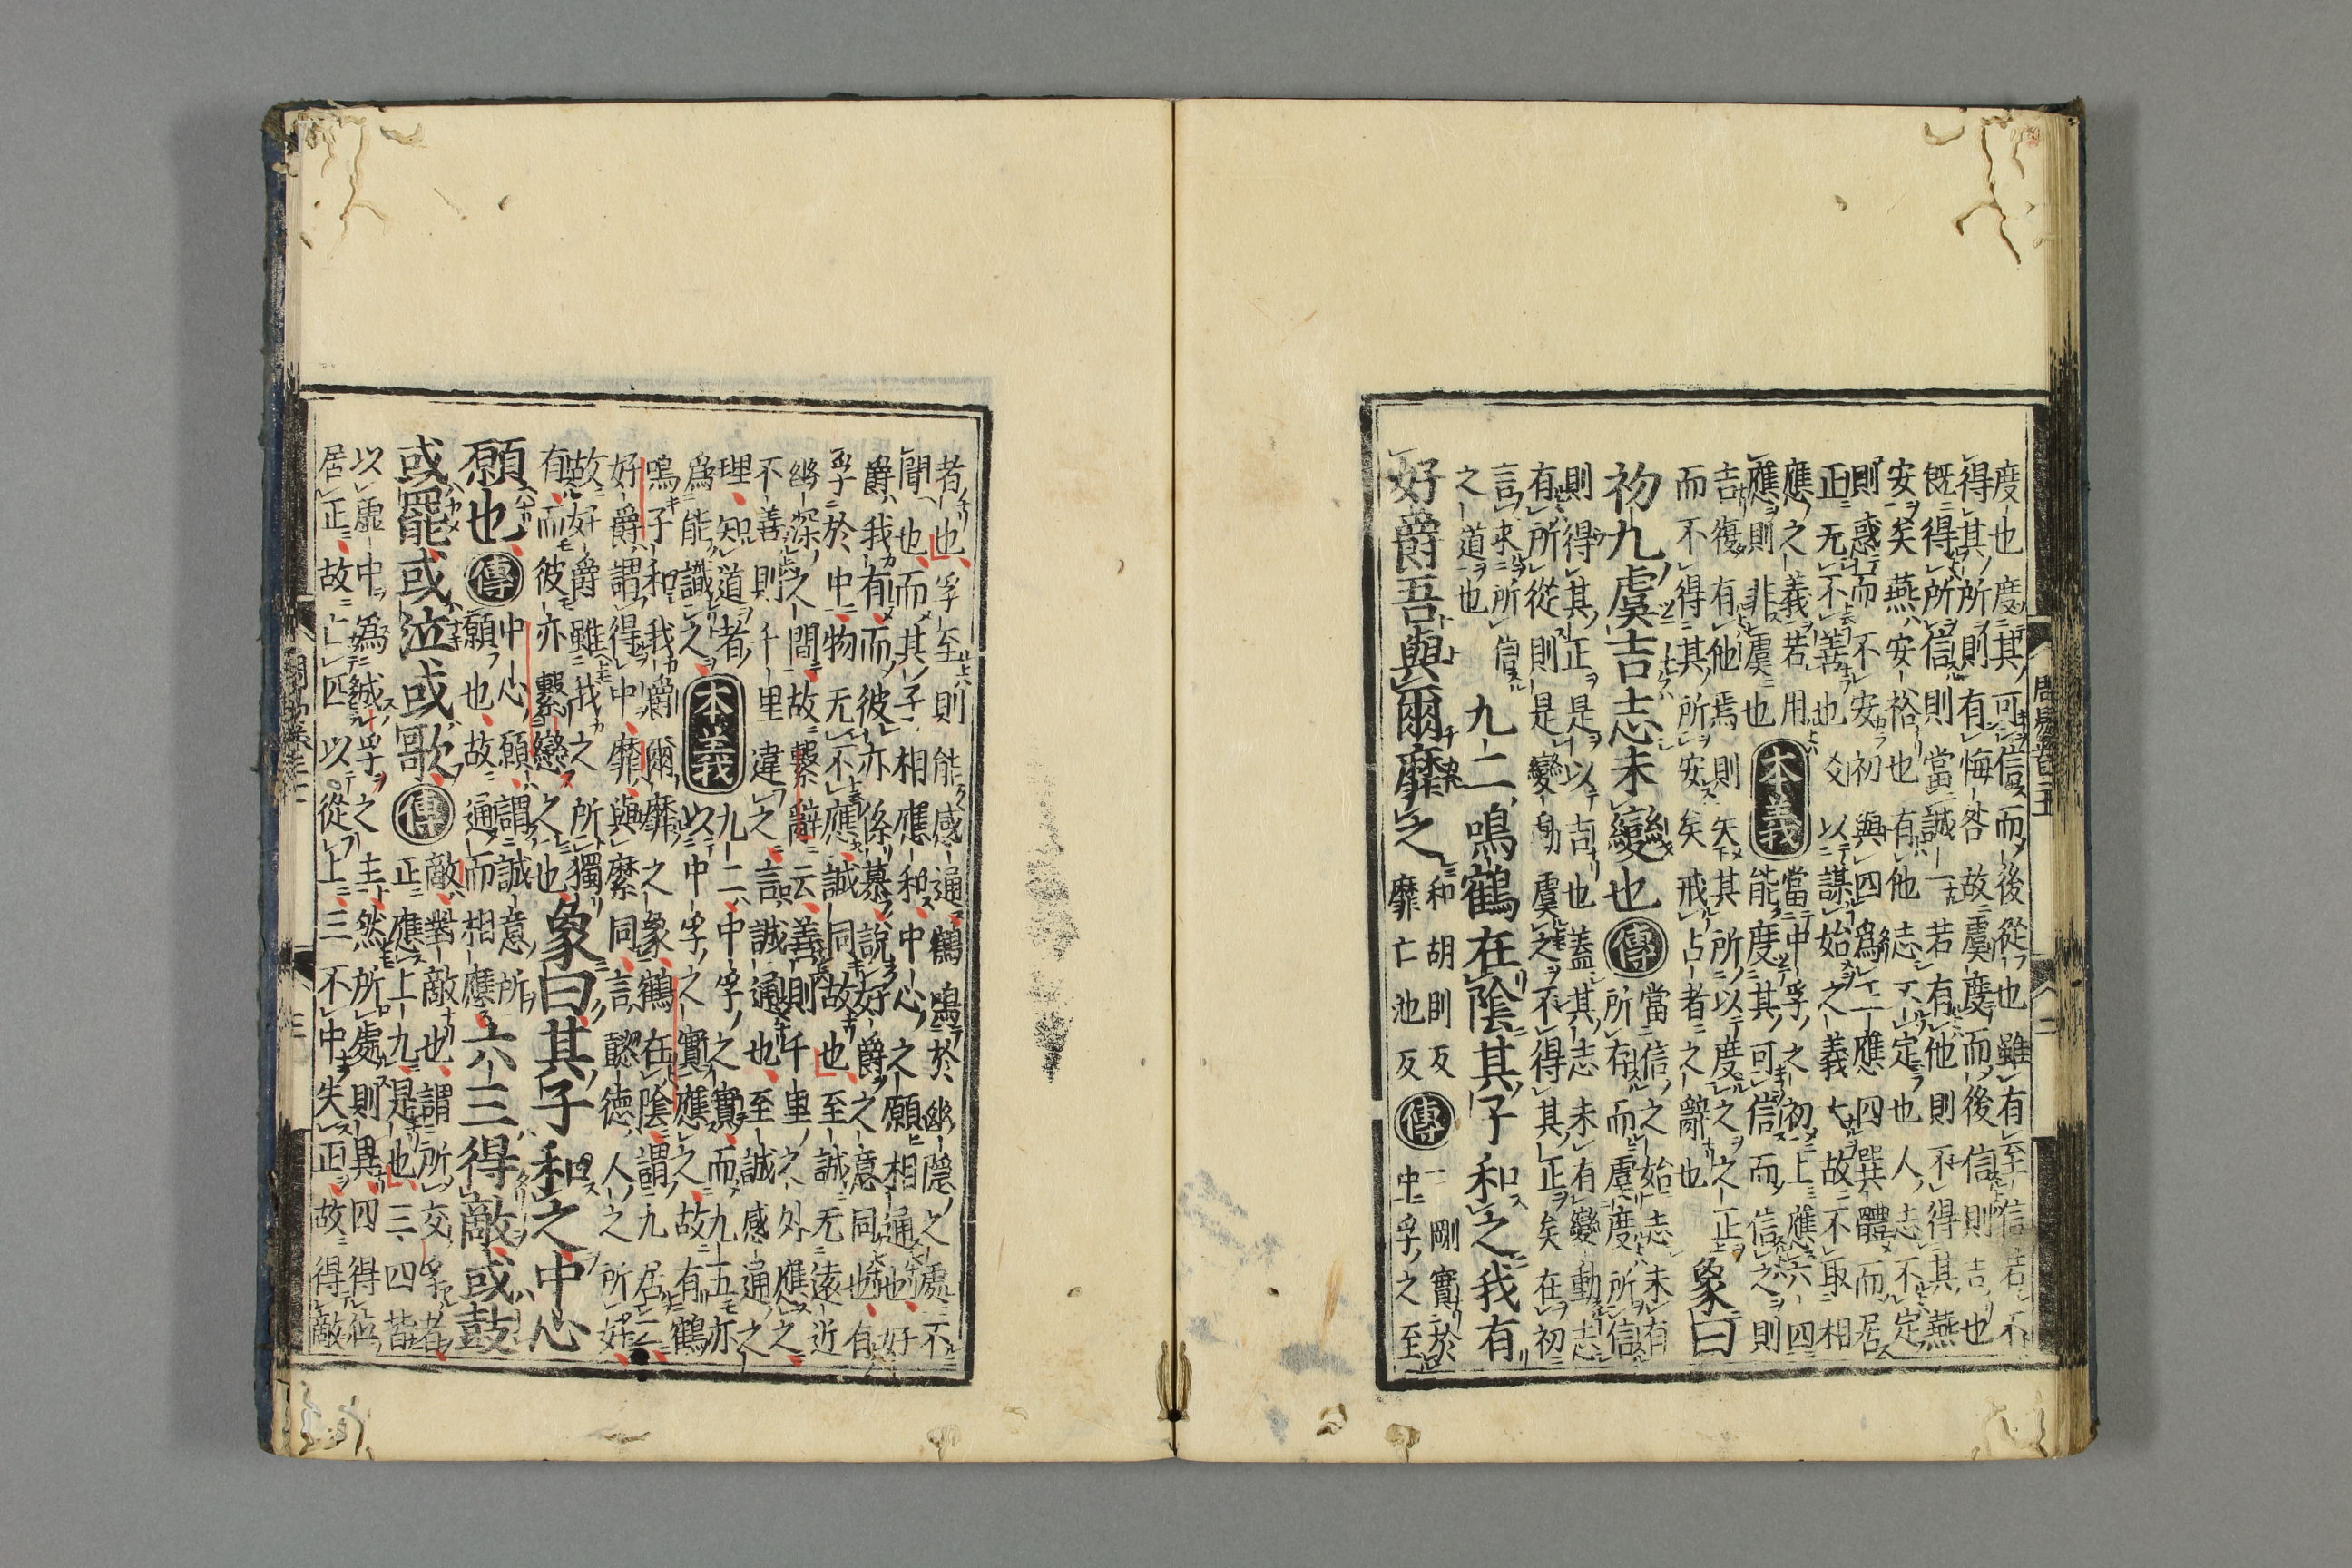 度也度其可信而後從也雖有至信若不
得其所則有悔咎故虞度而後信則吉也
既得所信則當誠一若有他則不得其燕
安矣燕安裕也有他志不定也人志不定
則惑而不安初與四爲正應四巽體而居
正无不善也爻以謀始之義大故不取相
應之義若用
應則非虞也
本義
當中孚之初上應六四
能度其可信而信之則
吉復有他焉則失其所以度之之正
而不得其所安矣戒占者之辭也
象曰
初九虞吉志未變也
傳
當信之始志未有
所存而虞度所信
則得其正是以吉也蓋其志未有變動志
有所從則是變動虞之不得其正矣在初
言求所信
之道也
九二鳴鶴在陰其子和之我有
好爵吾與爾靡之
和胡卧反
靡亡池反
傳
二剛實於
中孚之至
者也孚至則能感通鶴鳴於幽隱之處不
聞也而其子相應和中心之願相通也好
爵我有而彼亦係慕說好爵之意同也有
孚於中物无不應誠同故也至誠无遠近
幽深之間故繫辭云善則千里之外應之
不善則千里違之言誠通也至誠感通之
理知道者
爲能識之
本義
九二中孚之實而九五亦
以中孚之實應之故有鶴
鳴子和我爵爾靡之象鶴在陰謂九居二
好爵謂得中靡與縻同言懿德人之所好
故好爵雖我之所獨
有而彼亦繫戀之也
象曰其子和之中心
願也
傳
中心願謂誠意所
願也故通而相應
六三得敵或鼓
或罷或泣或歌
傳
敵對敵也謂所交孚者
正應上九是也三四皆
以虛中爲成孚之主然所處則異四得位
居正故亡匹以從上三不中失正故得敵